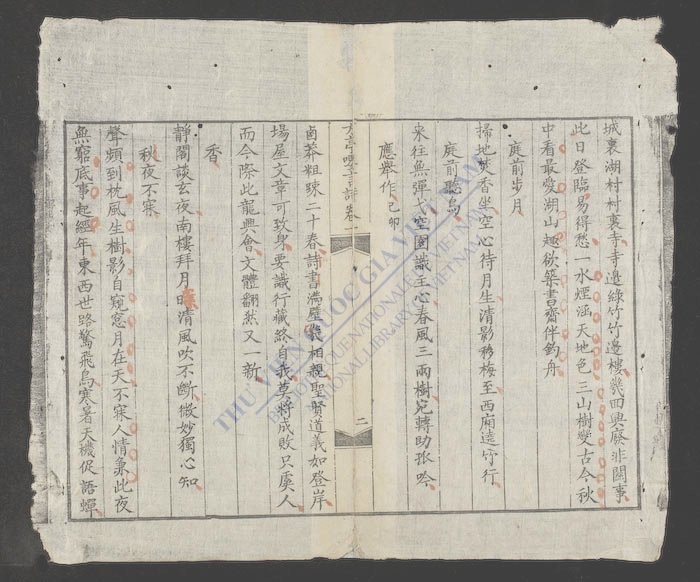 城裏湖村村裏寺寺邊綠竹竹邊樓幾回興廢非關事
此日登臨易得愁一水煙涵天地色三山樹變古今秋
中看最愛湖山趣欲築書齋伴釣舟
庭前步月
掃地焚香坐空心待月生清影移梅至西廂遠竹行
庭前聽鳥
來往無彈弋空園識主心春風三兩樹宛轉助孤吟
應舉作己卯
詩卷一
二
鹵莽粗踈二十春詩書滿壁幾相親聖賢道義如登岸
場屋文章可致身要識行藏終自我莫將成敗只虞人
而今際此龍興會文體翻然又一新
香
靜閣談玄夜南樓拜月時清風吹不斷微妙獨心知
秋夜不寐
聲頻到枕風生樹影自窺窓月在天不寐人情象此夜
無窮底事起經年東西世路驚飛鳥寒暑天機促語蟬
THƯ VIỆN QUỐC GIA VIỆT NAM
BIBLIOTHÈQUE NATIONALE DU VIETNAM
NATIONAL LIBRARY OF VIETNAM